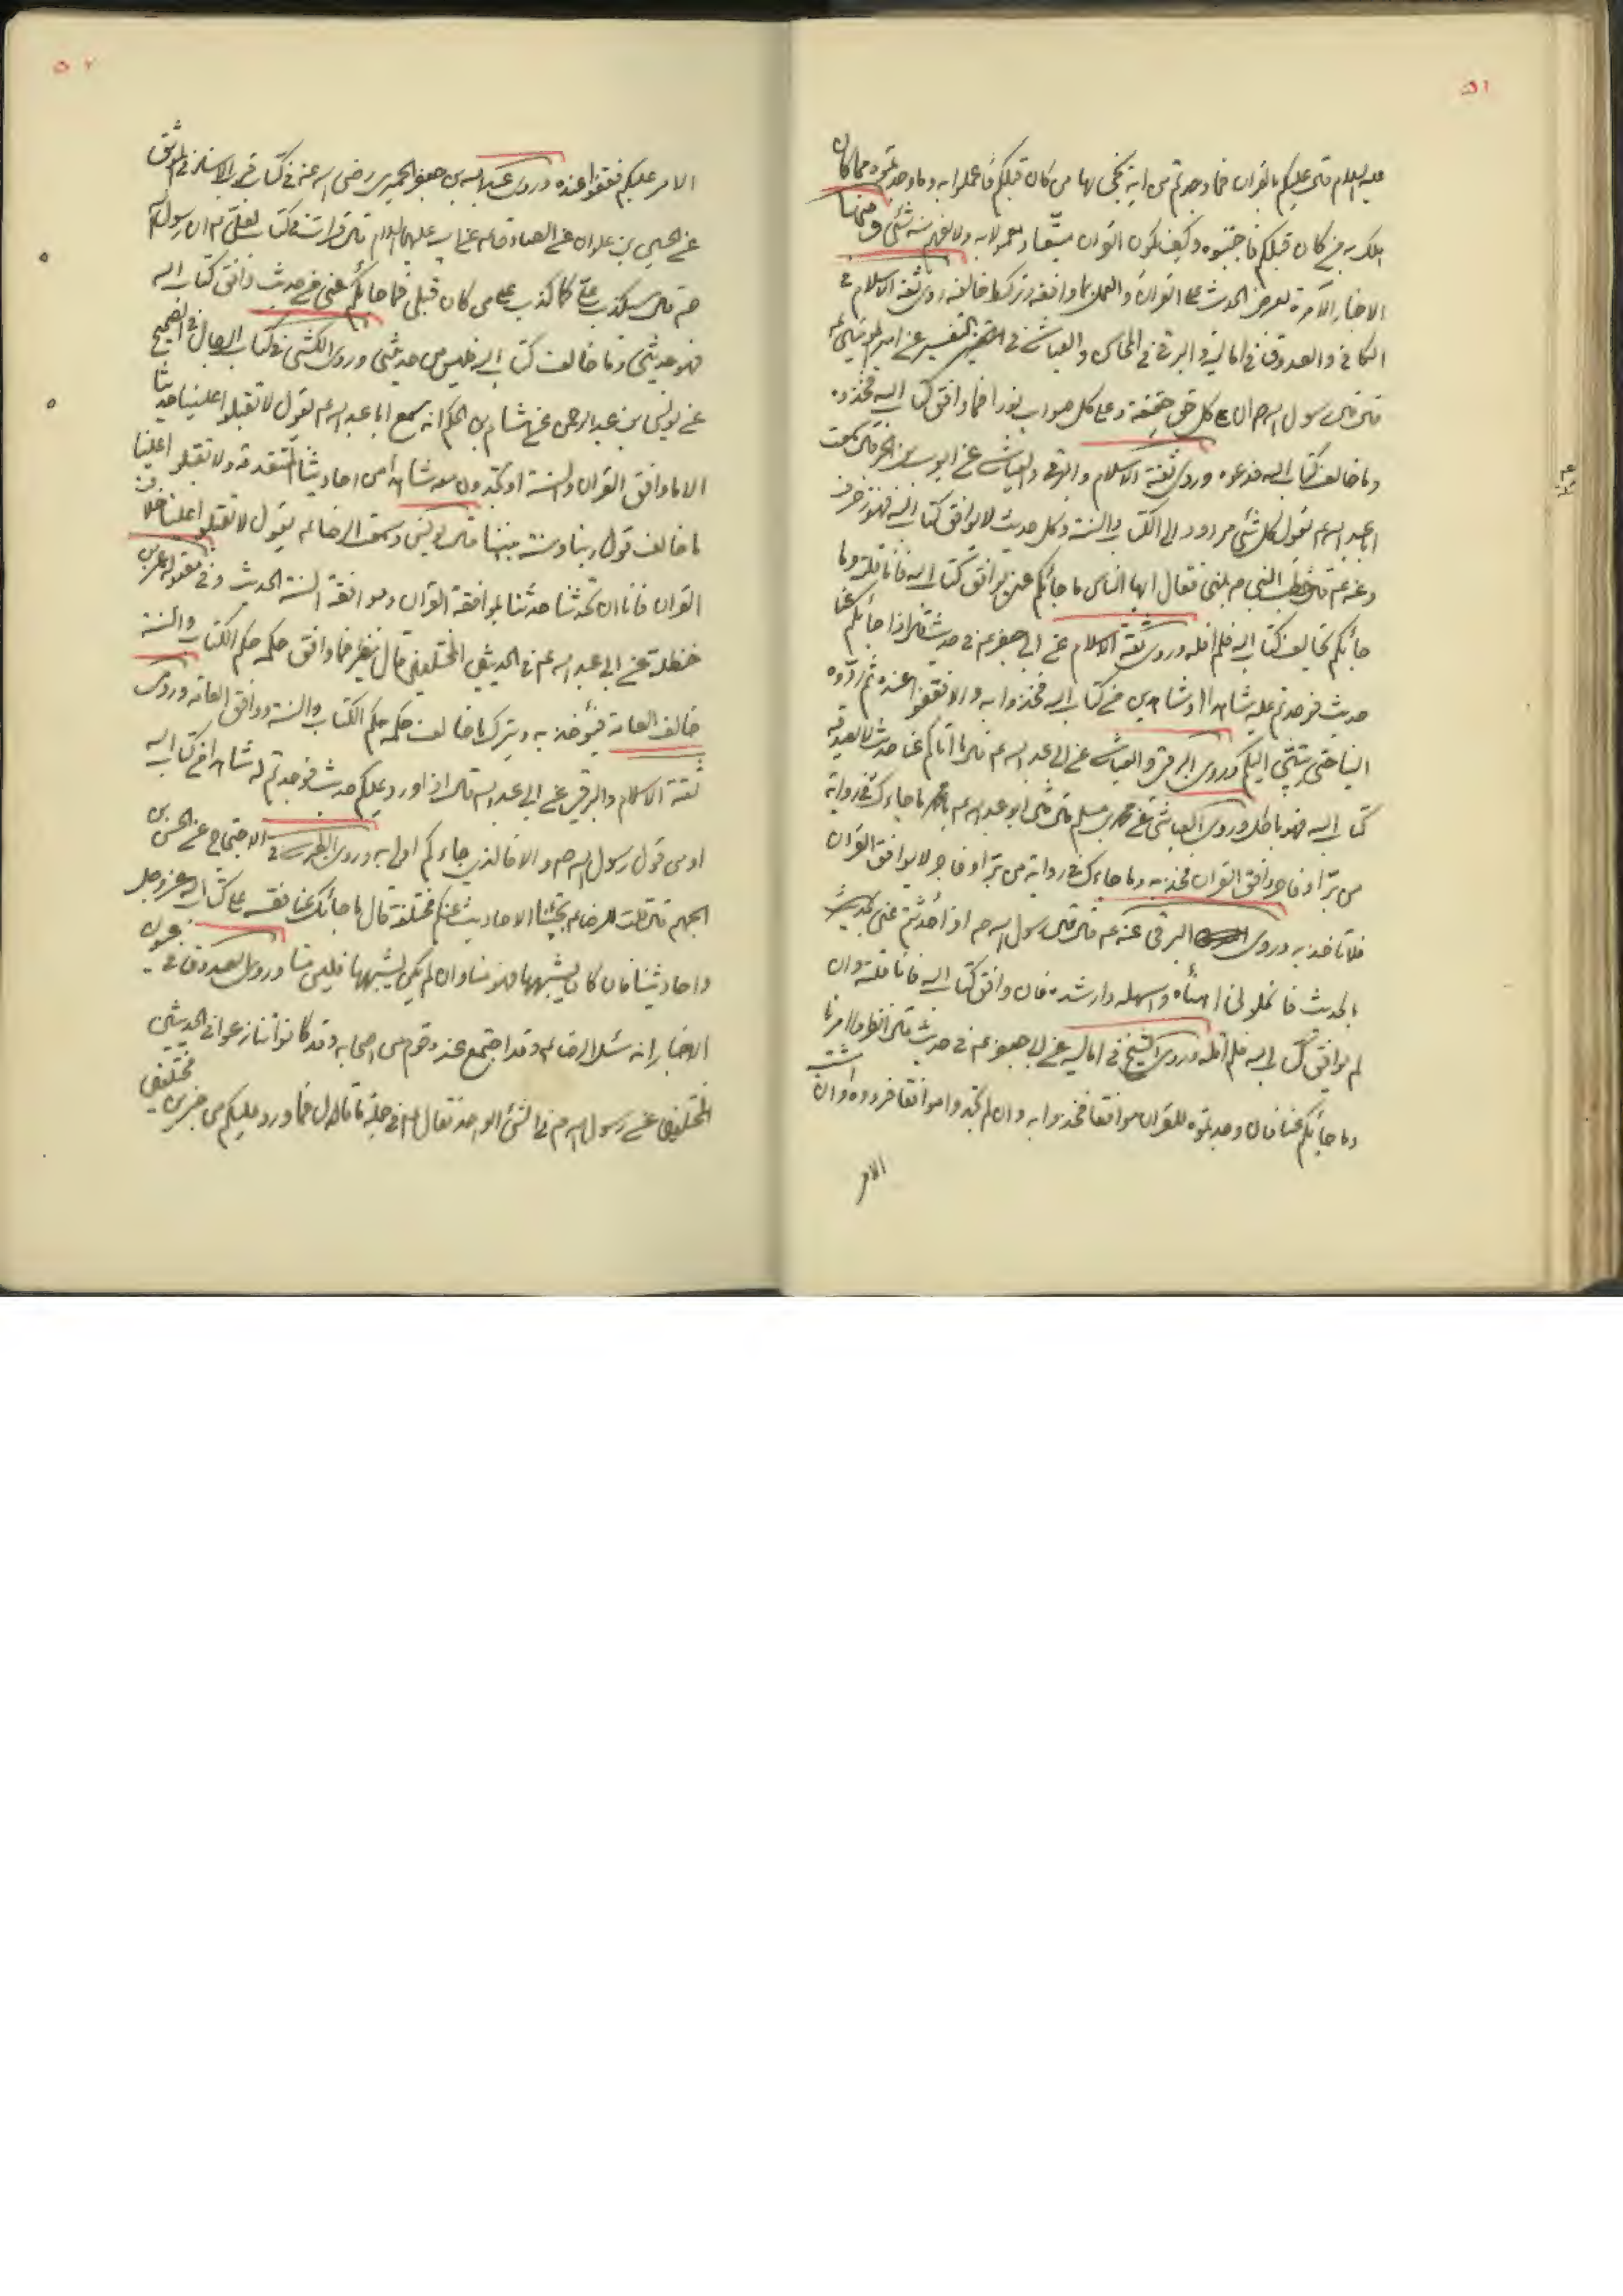 ٥١
عليه السلام قال عليكم بالقران فما وجدتم من اية نجى بها من كان قبلكم فاعملوا به وما وجدتموه مما كان
هلك به من كان قبلكم فاجتنبوه وكيف يكون القران متبعا ومعمولا به ولا يفهم منه شئ ومنها
الاخبار الآمرة بعرض الحديث على القران والعمل بما وافقه وترك ما خالفه روى ثقة الاسلام في
الكافي والصدوق في اماليه والبرقي في المحاسن والعياشي في التفسير عن
قال قال رسول الله ص ان على كل حق حقيقة وعلى كل صواب نورا فما وافق كتاب الله فخذوه
وما خالف كتاب الله فدعوه وروى ثقة الاسلام والبرقي والعياشي عن ايوب بن الحر قال سمعت
ابا عبد الله ع يقول كل شئ مردود الى الكتاب والسنة وكل حديث لا يوافق كتاب الله فهو زخرف
وعنه ع قال خطب النبي ص بمنى فقال ايها الناس ما جائكم عني يوافق كتاب الله فانا قلته وما
جائكم يخالف كتاب الله فلم اقله وروى ثقة الاسلام عن ابي جعفر ع في حديث قال اذا جائكم عنا
حديث فوجدتم عليه شاهدا او شاهدين من كتاب الله فخذوا به والا فقفوا عنده ثم ردوه
الينا حتى يستبين اليكم وروى البرقي والعياشي عن ابي عبد الله ع قال ما اتاكم عنا حديث لا يصدقه
كتاب الله فهو باطل وروى العياشي عن محمد بن مسلم قال قال ابو عبد الله ع يا محمد ما جاءك في رواية
من بر او فاجر وافق القران فخذ به وما جاءك في رواية من بر او فاجر لا يوافق القران
فلا تاخذ به وروى البرقي عنه ع قال قال رسول الله ص اذا حدثتم عني
بالحديث فانحلوني اهناه واسهله وارشده فان وافق كتاب الله فانا قلته وان
لم يوافق كتاب الله فلم اقله وروى الشيخ في اماليه عن ابي جعفر ع في حديث قال انظروا امرنا
وما جائكم عنا فان وجدتموه للقران موافقا فخذوا به وان لم تجدوا موافقا فردوه وان اشتبه
الامر
٥٢
الامر عليكم فقفوا عنده وروى عبد الله بن جعفر الحميري رضي الله عنه في كتاب قرب الاسناد في الموثق
عن الحسين بن علوان عن الصادق عن ابيه عليهما السلام قال قرات في كتاب لعلي ع ان رسول الله
ص قال سيكذب علي كما كذب على من كان قبلي فما جائكم عني من حديث وافق كتاب الله
فهو حديثي وما خالف كتاب الله فليس من حديثي وروى الكشي في كتاب الرجال في الصحيح
عن يونس بن عبد الرحمن عن هشام بن الحكم انه سمع ابا عبد الله ع يقول لا تقبلوا علينا حديثا
الا ما وافق القران والسنة او تجدون معه شاهدا من احاديثنا المتقدمة ولا تقبلوا علينا
ما خالف قول ربنا وسنة نبينا قال يونس وسمعت الرضا ع يقول لا تقبلوا علينا خلاف
القران فانا ان تحدثنا حدثنا بموافقة القران وموافقة السنة الحديث وفي مقبولة عمر بن
حنظلة عن ابي عبد الله ع في الحديثين المختلفين قال ينظر فما وافق حكمه حكم الكتاب والسنة
خالف العامة فيؤخذ به ويترك ما خالف حكمه حكم الكتاب والسنة ووافق العامة وروى
ثقة الاسلام والبرقي عن ابي عبد الله قال اذا ورد عليكم حديث فوجدتم له شاهدا من كتاب الله
او من قول رسول الله ص والا فالذي جاءكم اولى به وروى الطبرسي في الاحتجاج عن الحسن بن
الجهم قال قلت للرضا ع تجيئنا الاحاديث عنكم مختلفة قال ما جائك عنا فقسه على كتاب الله عز وجل
واحاديثنا فان كان يشبهها فهو منا وان لم يكن يشبهها فليس منا وروى الصدوق في عيون
الاخبار انه سئل الرضا ع وقد اجتمع عنده قوم من اصحابه وقد كانوا تنازعوا في الحديثين
المختلفين عن رسول الله ص في الشئ الواحد فقال ع في جملة ما قال فما ورد عليكم من خبرين مختلفين